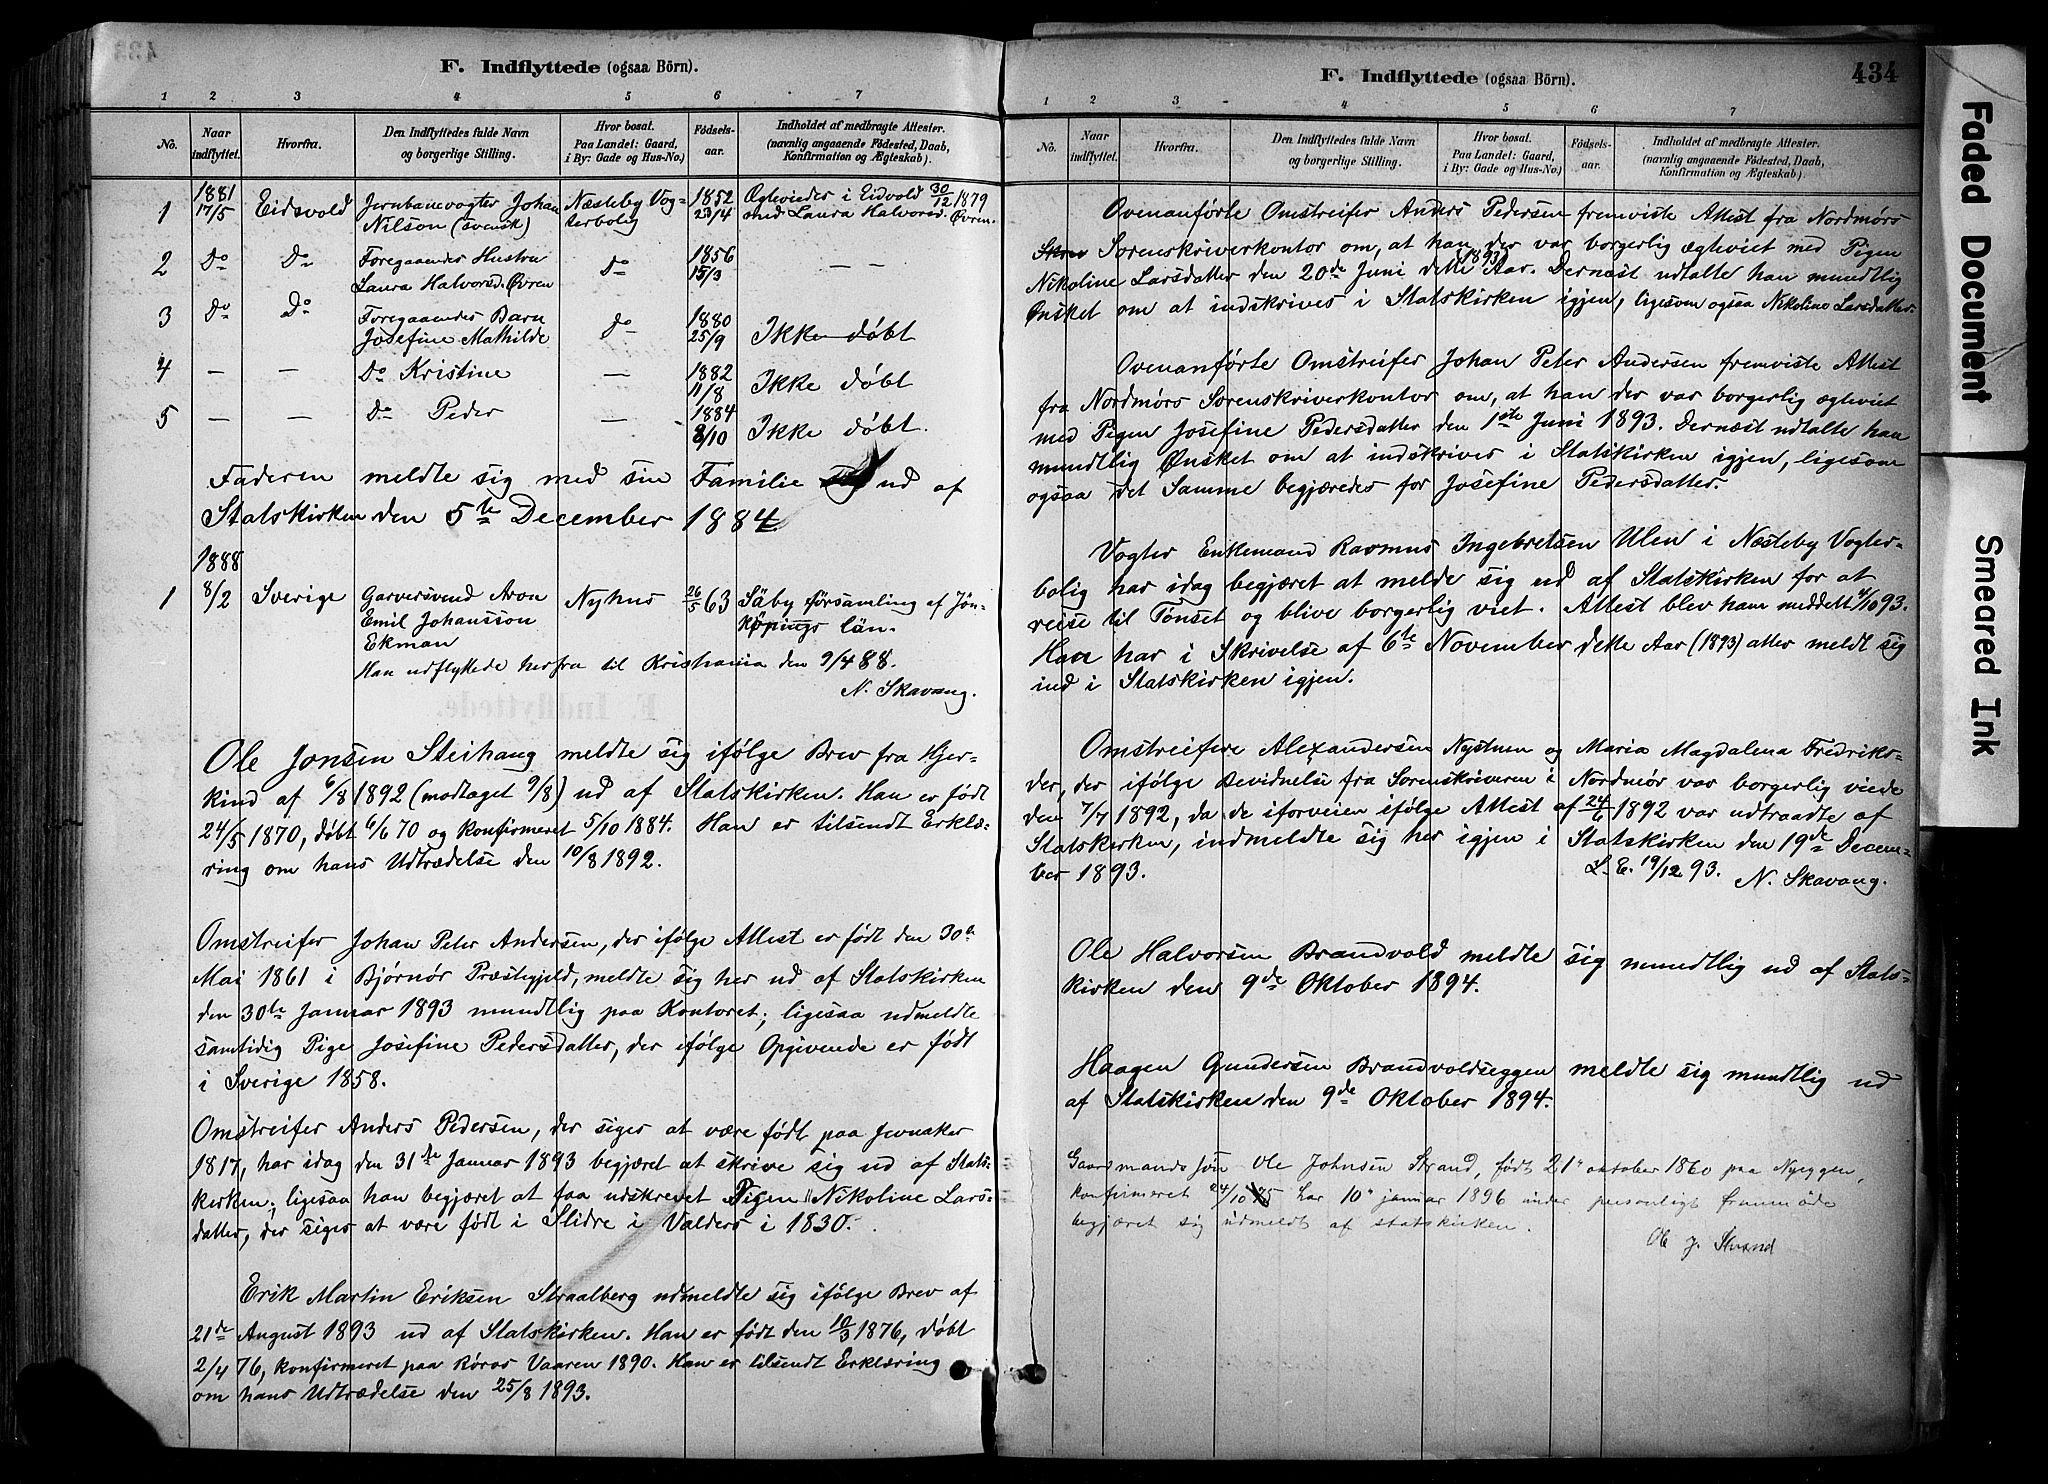 F. Indflyttede (ogsaa Börn).
1 2 3 4 5 6 7
No. Naar indflyttet. Hvorfra. Den Indflyttedes fulde Navn og borgerlige Stilling. Hvor bosat. Paa Landet: Gaard, i By: Gade og Hus-No.) Födsels-aar. Indholdet af medbragte Attester. (navnlig angaaende Födested, Daab, Konfirmation og Ægteskab).
1 1881 17/5 Eidsvold Jernbanevogter Johan Nilson (svensk) Næsteby Vogterbolig 1852 23/4 Ægteviedes i Eidvold 30/12 1879 med Laura Halvorsd. Øvren.
2 Do Do Foregaaendes Hustru Laura Halvorsd. Øvren Do 1856 15/3 — —
3 Do Do Foregaaendes Barn Josefine Mathilde Do 1880 25/9 Ikke døbt
4 — — Do Kristine — 1882 11/8 Ikke døbt
5 — — Do Peder — 1884 8/10 Ikke døbt.
Faderen meldte sig med sin Familie ud af
Statskirken den 5te December 1884
1888
1 8/2 Sverige Garversvend Aron Emil Johansson Ekman Nyhus 26/5 63 Säby församling af Jönköpings län.
Han udflyttede herfra til Kristiania den 9/4 88.
N. Skavang.
Ole Jonsen Steihaug meldte sig ifølge Brev fra Hjer-
kind af 6/8 1892 (modtaget 9/8) ud af Statskirken. Han er født
24/5 1870, døbt 6/6 70 og konfirmeret 5/10 1884. Han er tilsendt Erklæ-
ring om hans Udtrædelse den 10/8 1892.
Omstreifer Johan Peter Andersen, der ifølge Attest er født den 30te
Mai 1861 i Bjørnør Præstegjeld, meldte sig her ud af Statskirken
den 30te Januar 1893 mundtlig paa Kontoret; ligesaa udmeldte
samtidig Pige Josefine Pedersdatter, der ifølge Opgivende er født
i Sverige 1858.
Omstreifer Anders Pedersen, der siges at være født paa Jevnaker
1817, har idag den 31te Januar 1893 begjæret at skrive sig ud af Stats-
kirken; ligesaa han begjæret at faa udskrevet Pigen Nikoline Lars-
datter, der siges at være født i Slidre i Valders i 1830.
Erik Martin Eriksen Straalberg udmeldte sig ifølge Brev af
21de August 1893 ud af Statskirken. Han er født den 10/3 1876, døbt
2/4 76, konfirmeret paa Røros Vaaren 1890. Han er tilsendt Erklæring
om hans Udtrædelse den 25/8 1893.
F. Indflyttede (ogsaa Börn). 434
1 2 3 4 5 6 7
No. Naar indflyttet. Hvorfra. Den Indflyttedes fulde Navn og borgerlige Stilling. Hvor bosat. Paa Landet: Gaard, i By: Gade og Hus-No.) Födsels-aar. Indholdet af medbragte Attester. (navnlig angaaende Födested, Daab, Konfirmation og Ægteskab).
Ovenanførte Omstreifer Anders Pedersen fremviste Attest fra Nordmørs
Skri Sorenskriverkontor om, at han der var borgerlig ægteviet med Pigen
Nikoline Larsdatter den 20de Juni dette (1893) Aar. Dernæst udtalte han mundtlig
Ønsket om at indskrives i Statskirken igjen, ligesom ogsaa Nikoline Larsdatter.
Ovenanførte Omstreifer Johan Peter Andersen fremviste Attest
fra Nordmørs Sorenskriverkontor om, at han der var borgerlig ægteviet
med Pigen Josefine Pedersdatter den 1ste Juni 1893. Dernæst udtalte han
mundtlig Ønsket om at indskrives i Statskirken igjen, ligesom
ogsaa det Samme begjæredes for Josefine Pedersdatter.
Vogter Enkemand Rasmus Ingebretsen Ulen i Næsteby Vogter-
bolig har idag begjæret at melde sig ud af Statskirken for at
reise til Tønset og blive borgerlig viet. Attest blev ham meddelt 4/10 93.
Han har i Skrivelse af 6te November dette Aar (1893) atter meldt sig
ind i Statskirken igjen.
Omstreifere Alexandersen Nystuen og Maria Magdalena Fredriks-
der, der ifølge Bevidnelse fra Sorenskriveren i Nordmør var borgerlig viede
den 7/7 1892, da de iforveien ifølge Attest af 24/6 1892 var udtraadte af
Statskirken, indmeldte sig her igjen i Statskirken den 19de Decem-
ber 1893. L. E. 19/12 93. N. Skavang.
Ole Halvorsen Brandvold meldte sig mundtlig ud af Stats-
kirken den 9de Oktober 1894.
Haagen Gundersen Brandvoldseggen meldte sig mundtlig ud
af Statskirken den 9de Oktober 1894.
Gaardmandssøn Ole Johnsen Strand, født 21de oktober 1860 paa Nyeggen,
konfirmeret 24/10 75 har 10de januar 1896 under personligt fremmøde
begjæret sig udmeldt af statskirken.
Ole J. Strand
Faded Document
Smeared Ink